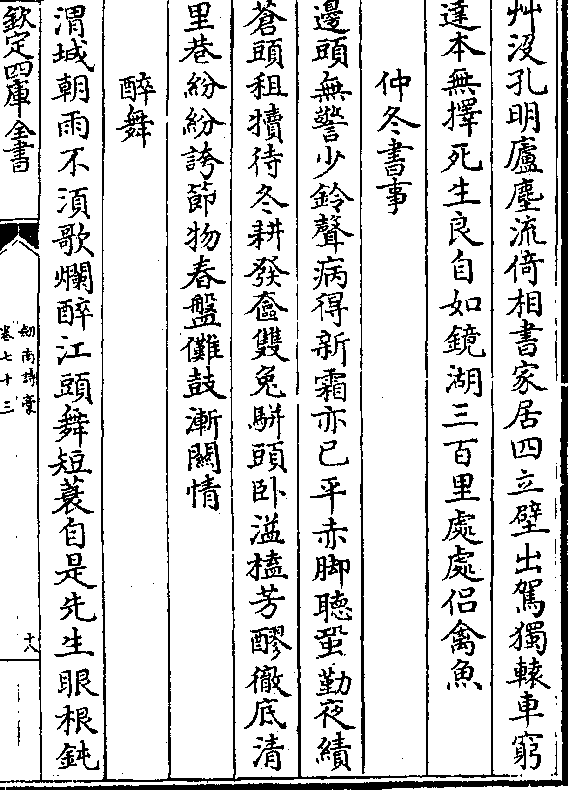 艸没孔明廬塵流倚相書家居四立壁出駕獨轅車窮
達本無擇死生良自如鏡湖三百里處處侣禽魚
仲冬書事
邊頭無警少鈴聲病得新霜亦已平赤脚聴蛩勤夜績
蒼頭租犢待冬耕發奩雙兔駢頭卧溢榼芳醪徹底清
里巷紛紛誇節物春盤儺鼓漸闗情
醉舞
渭城朝雨不須歌爛醉江頭舞短蓑自是先生眼根鈍
欽定四庫全書
劒南詩稾
卷七十三
十八